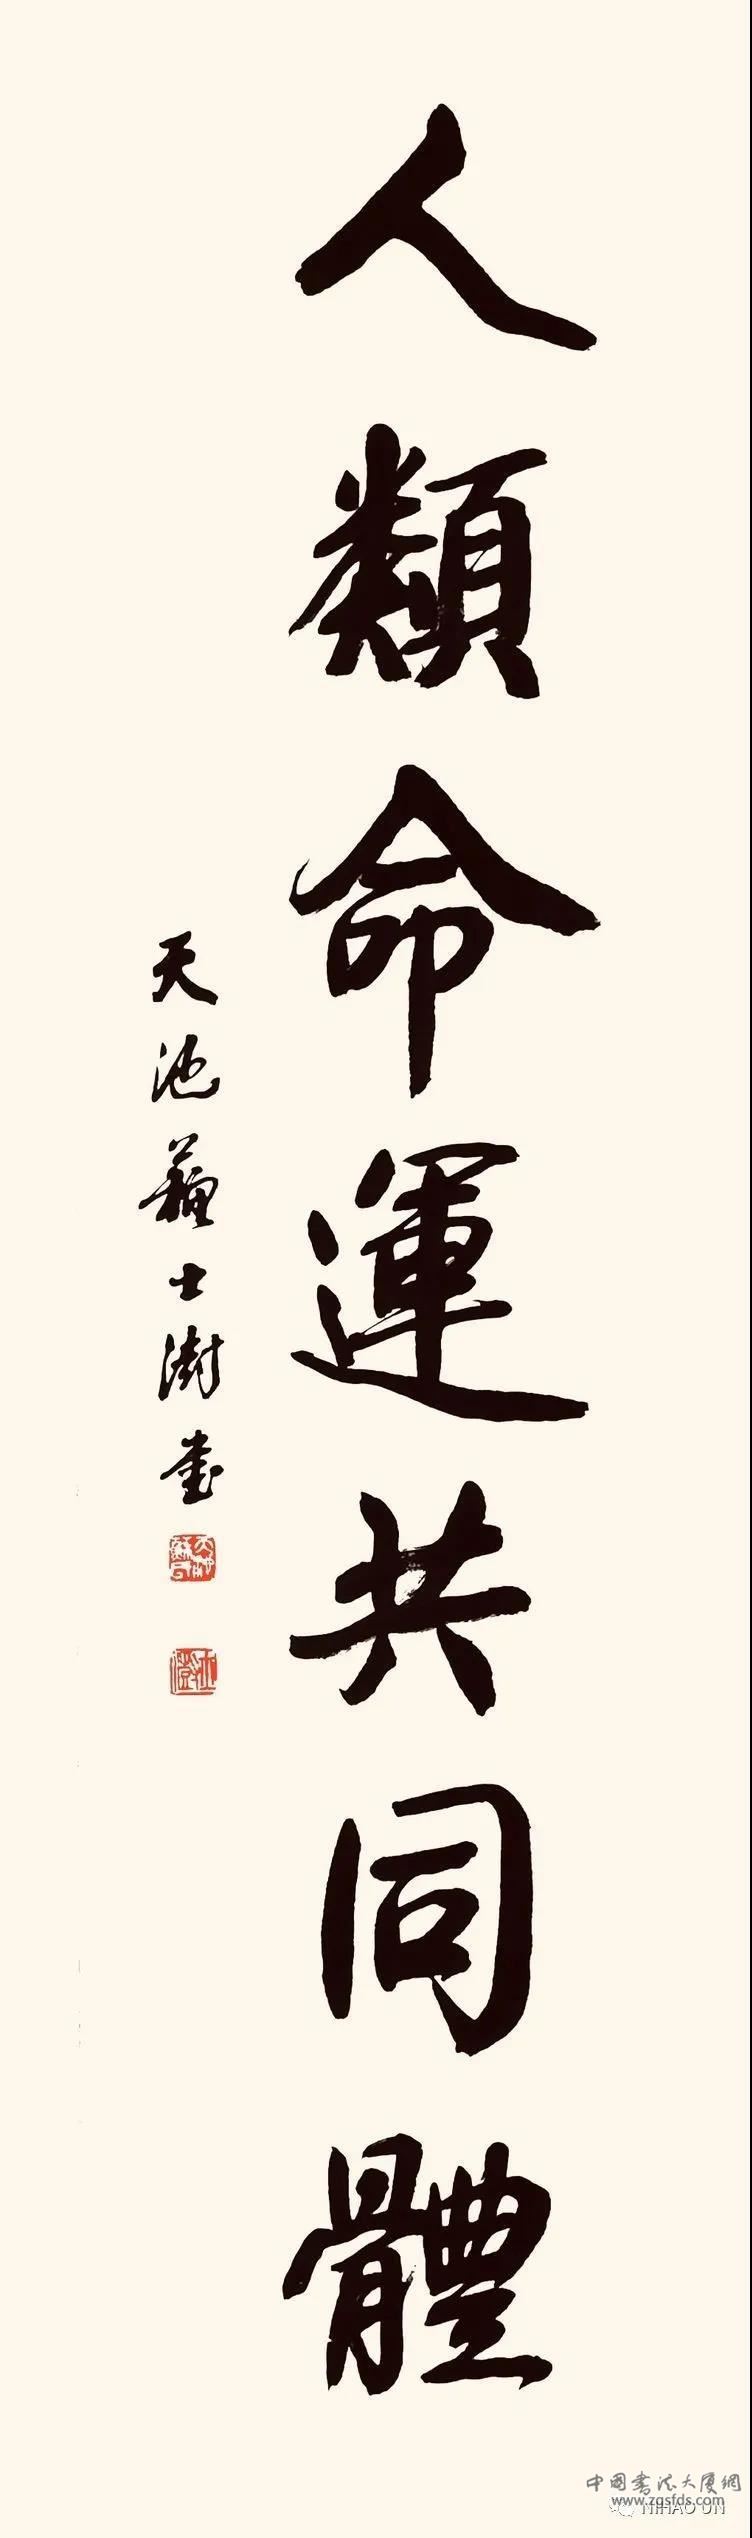 人類命運共同體
天池蘇士澍書
中國書法大厦網
www.zgsfds.com
NIHAO UN